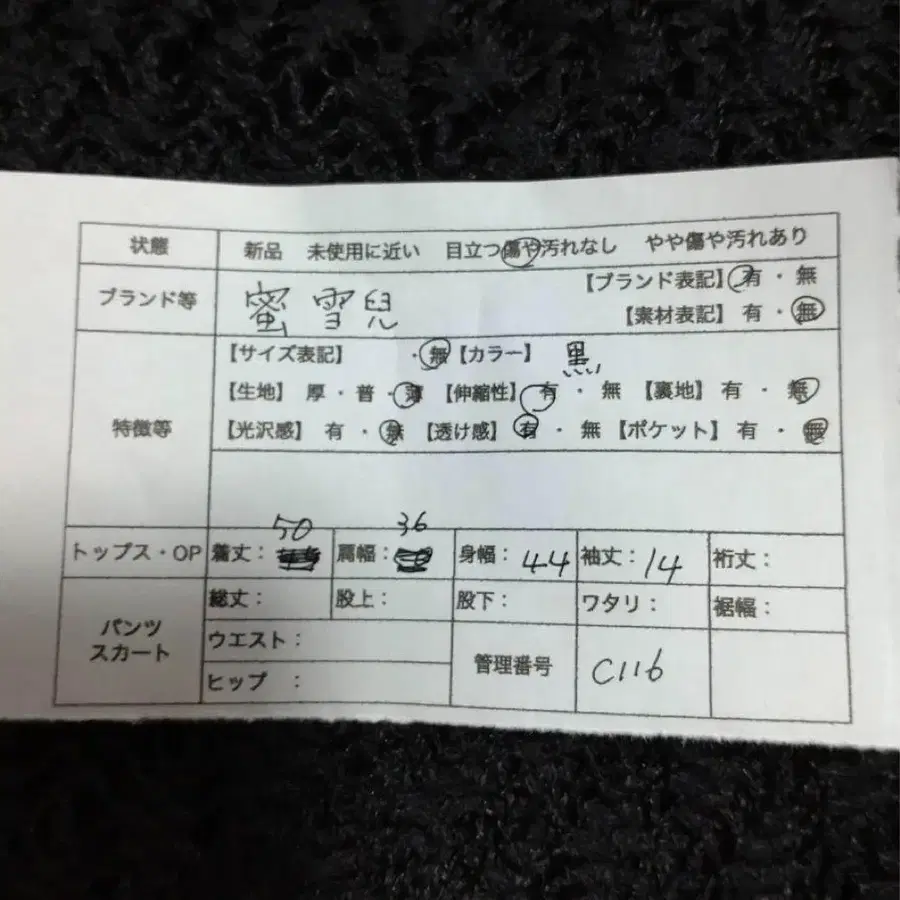 状態 新品 未使用に近い 目立つ傷や汚れなし やや傷や汚れあり
ブランド等 蜜雪兒 【ブランド表記】有・無
【素材表記】有・無
【サイズ表記】 ・無【カラー】 黒
特徴等 【生地】厚・普・薄【伸縮性】有・無【裏地】有・無
【光沢感】有・無【透け感】有・無【ポケット】有・無
50 36
トップス・OP 着丈: 肩幅: 身幅:44 袖丈:14 裄丈:
総丈: 股上: 股下: ワタリ: 裾幅:
パンツ スカート ウエスト: 管理番号 C116
ヒップ :